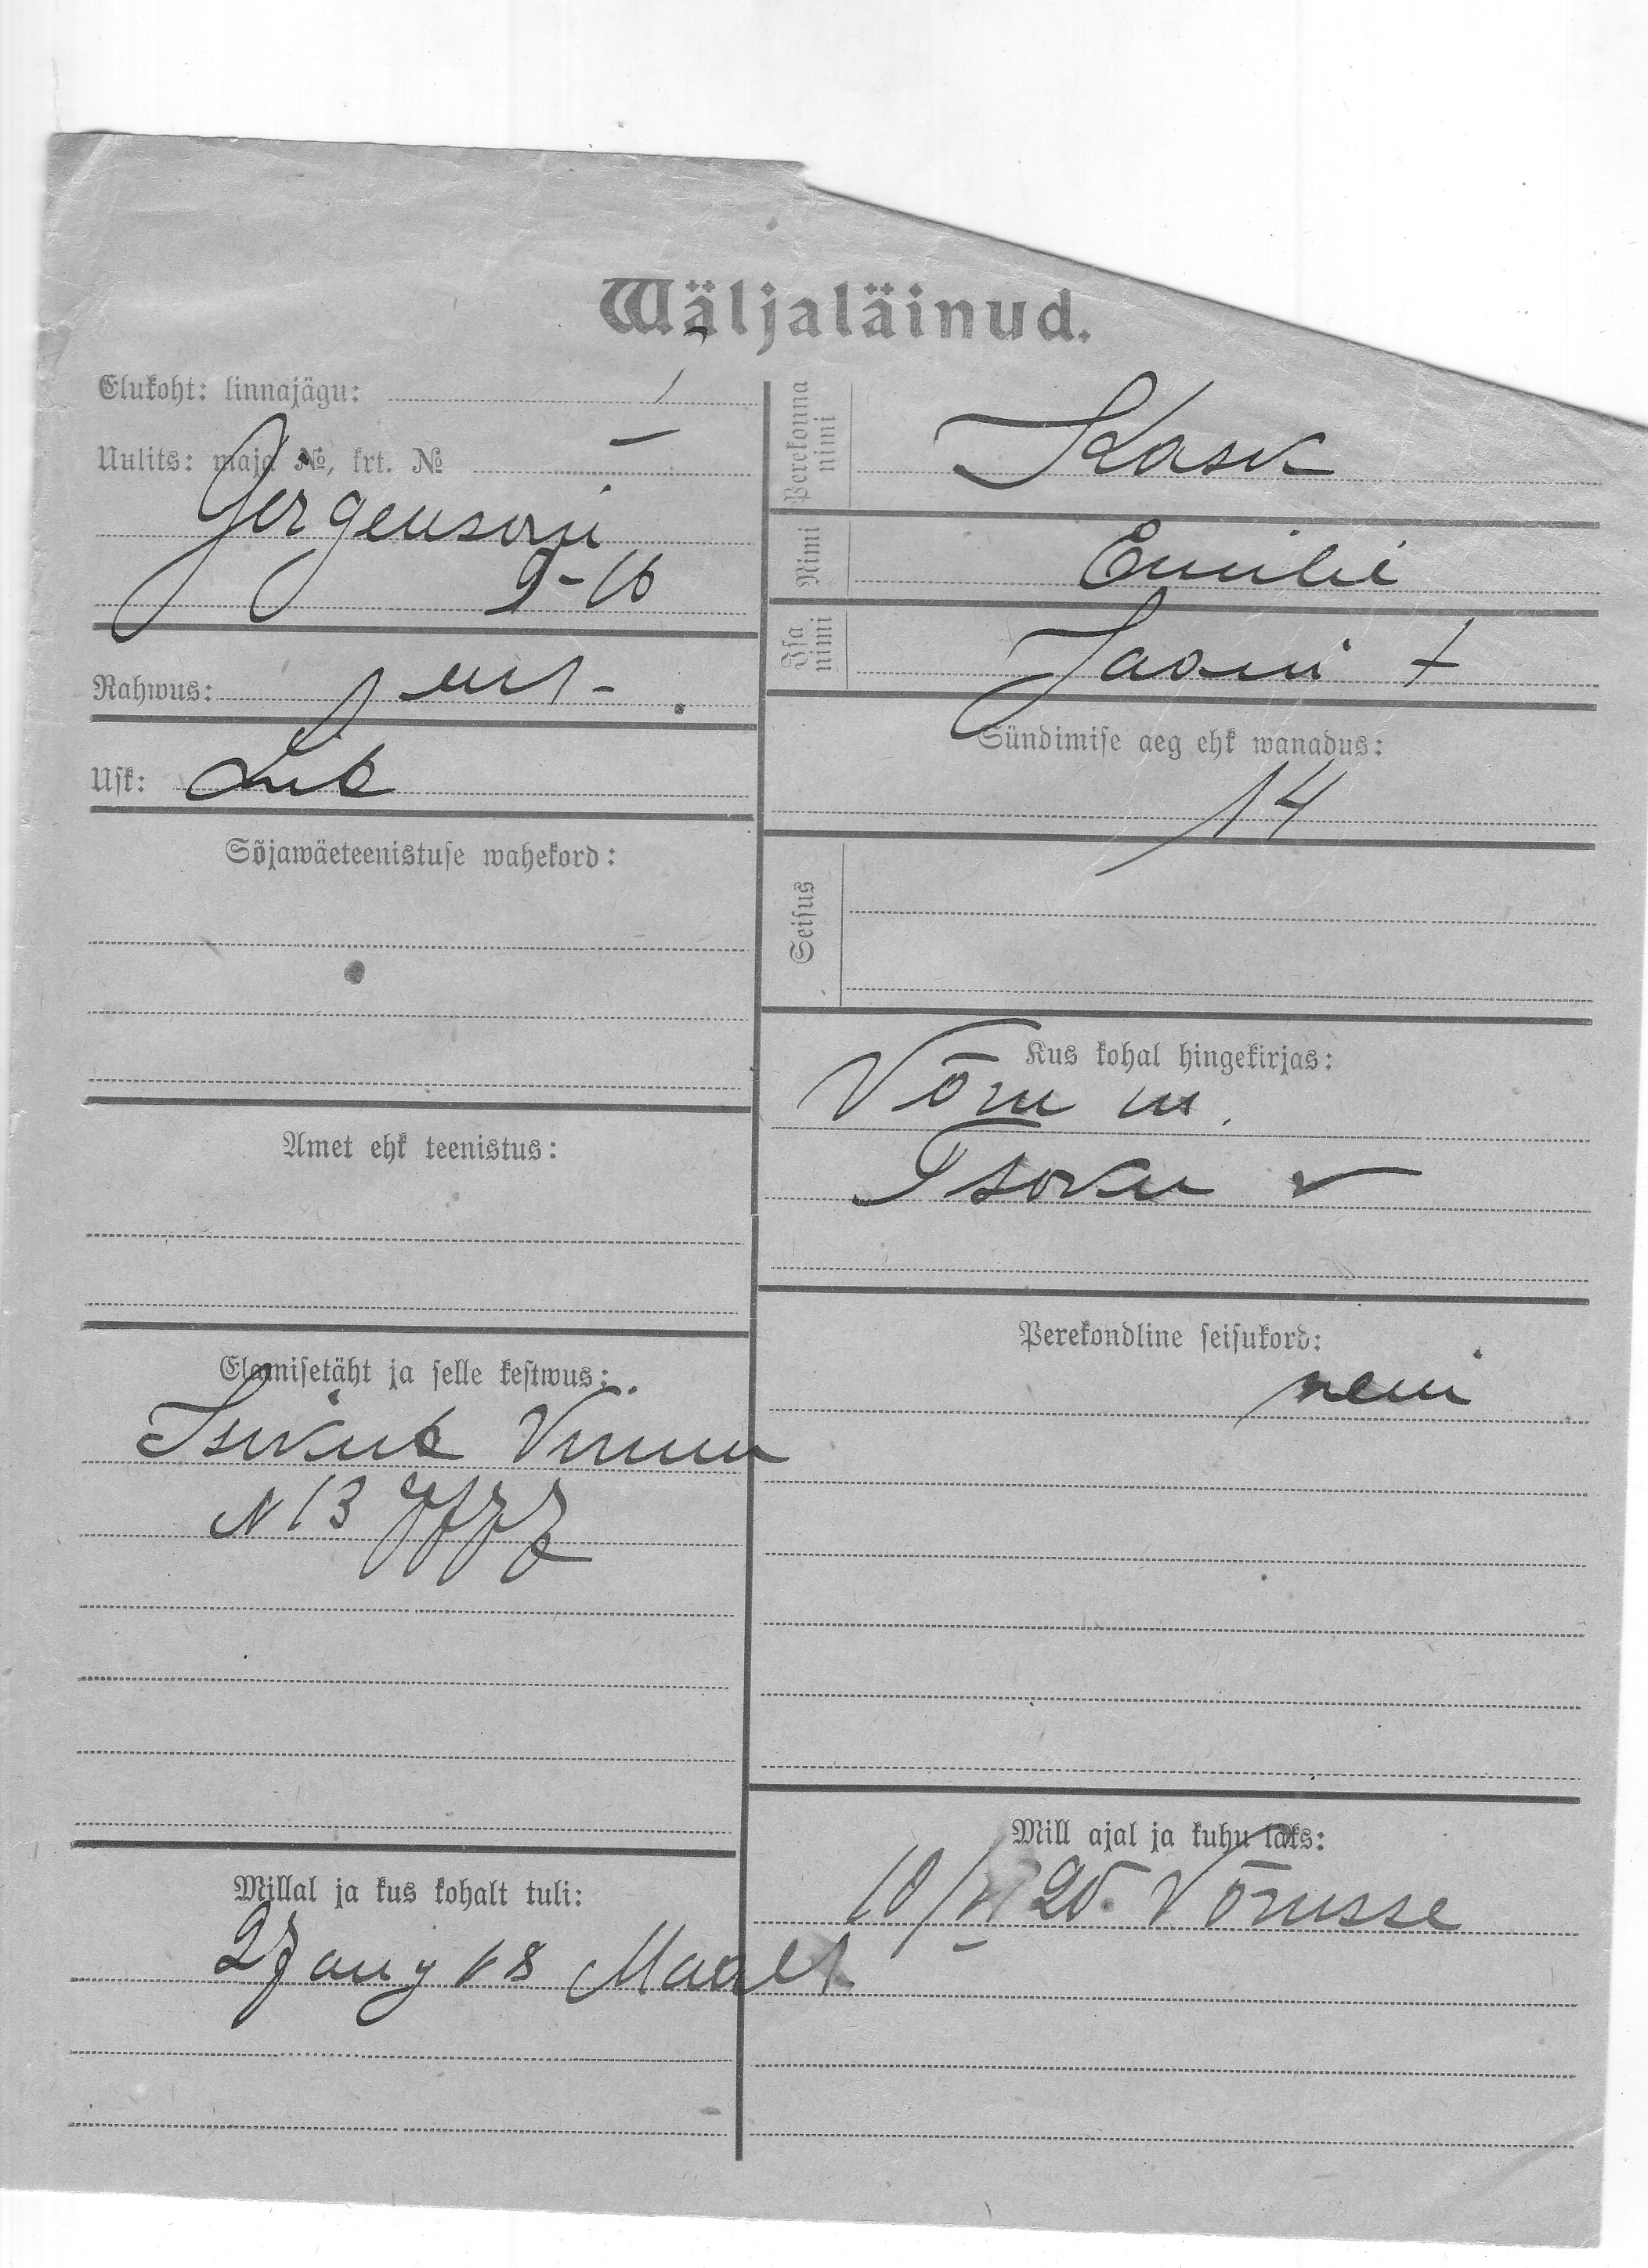 Wäljaläinud.
Elukoht: linnajägu: I
Uulits: maja №, krt. №
Jorgensoni
9-16
Rahwus: eest.
Usk: Lut
Sõjawäeteenistuse wahekord:
Amet ehk teenistus:
Elamisetäht ja selle kestwus:
N 13
Millal ja kus kohalt tuli:
27 aug 18 Maalt
Perekonna nimi Kask
Nimi Emilie
Isa nimi Jaani †
Sündimise aeg ehk wanadus:
14
Seisus
Kus kohal hingekirjas:
Võru m.
Tsooru v
Perekondline seisukord:
neiu
Mill ajal ja kuhu läks:
10/VI 20. Võrusse